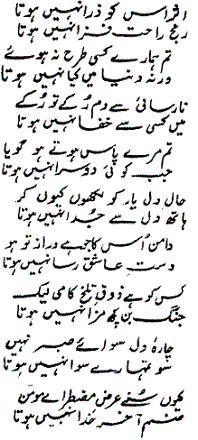 اثر اس کو ذرا نہیں ہوتا
رنج راحت فزا نہیں ہوتا
تم ہمارے کسی طرح نہ ہوئے
ورنہ دنیا میں کیا نہیں ہوتا
نارسائی سے دم رکے تو رکے
میں کسی سے خفا نہیں ہوتا
تم مرے پاس ہوتے ہو گویا
جب کوئی دوسرا نہیں ہوتا
حال دل یار کو لکھوں کیوں کر
ہاتھ دل سے جدا نہیں ہوتا
دامن اُس کا جو ہے دراز تو ہو
دستِ عاشق رسا نہیں ہوتا
کس کو ہے ذوقِ تلخ کامی لیک
جنگ بن کچھ مزا نہیں ہوتا
چارۂ دل سوائے صبر نہیں
سو تمہارے سوا نہیں ہوتا
کیوں سُنے عرضِ مضطر اے مومن
صنم آخر خدا نہیں ہوتا